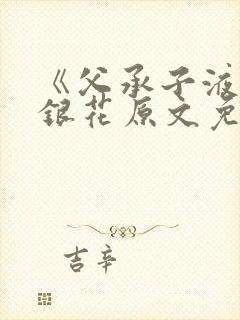 《父承子液
銀花原文免
吉辛